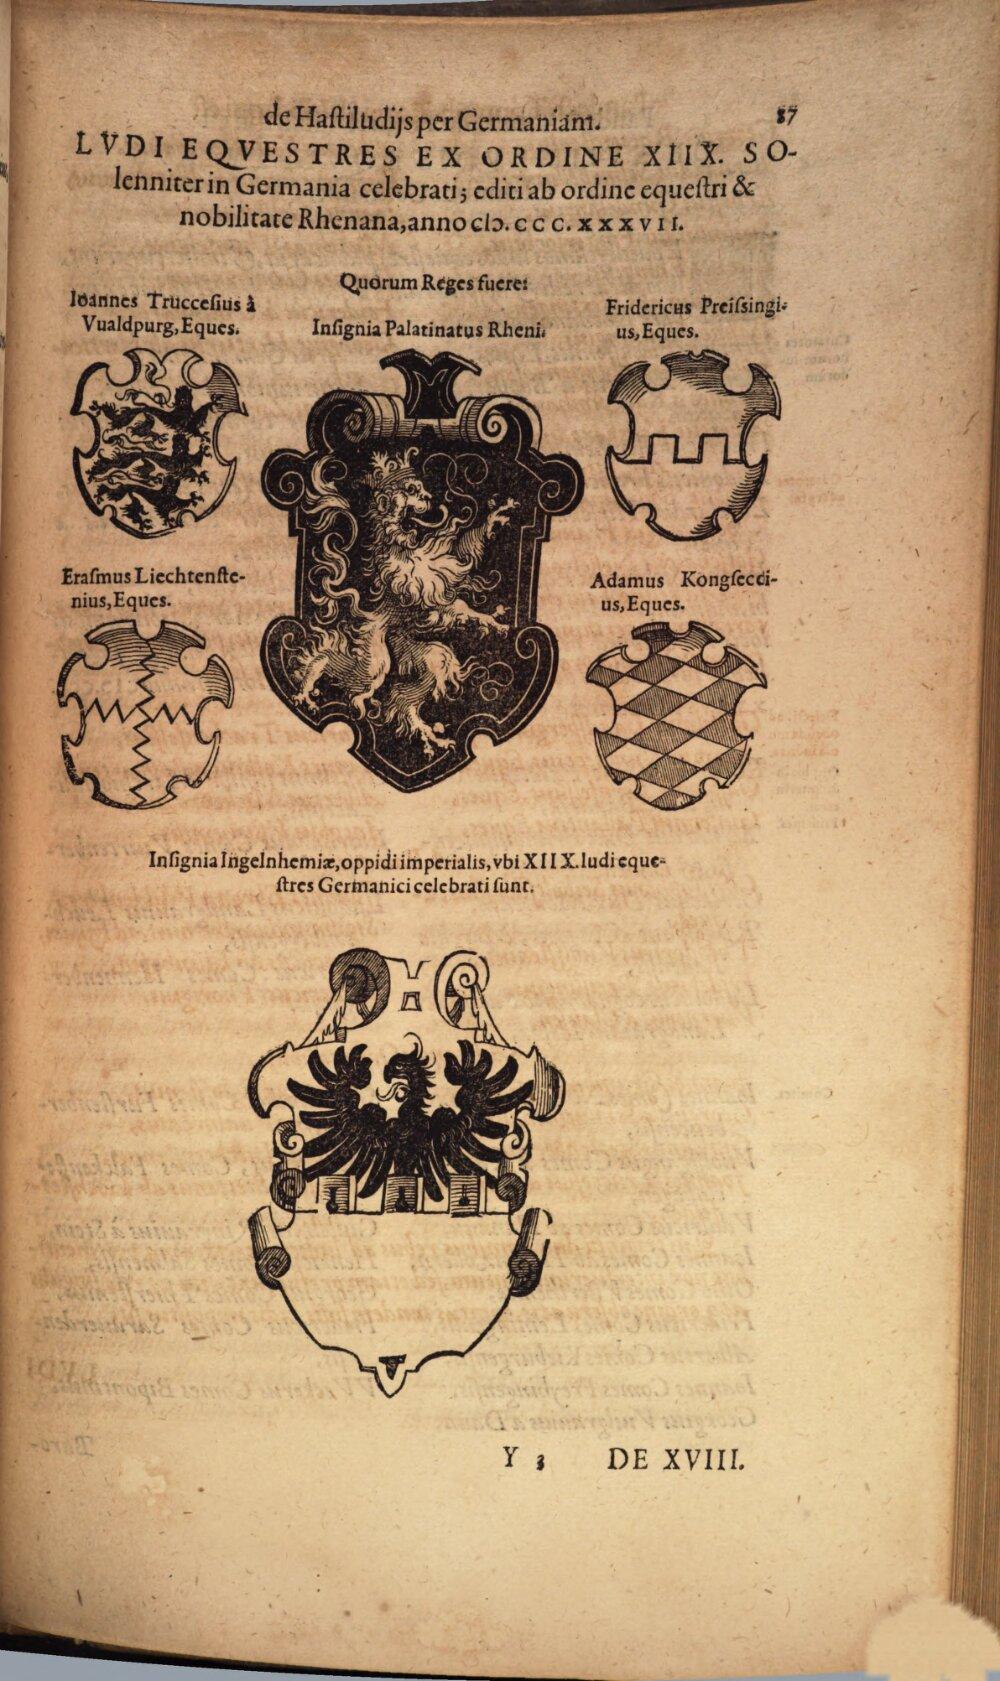 de Haſtiludijs per Germaniam. 87
LVDI EQVESTRES EX ORDINE XIIX. SO-
lenniter in Germania celebrati; editi ab ordine equeſtri &
nobilitate Rhenana, anno cIↄ. CCC. XXXVII.
Quorum Reges fuere:
Ioannes Truccefius à
Vualdpurg, Eques.
Inſignia Palatinatus Rheni.
Fridericus Preiſsingi-
us, Eques.
Eraſmus Liechtenſte-
nius, Eques.
Adamus Kongſecci-
us, Eques.
Inſignia Ingelnhemiæ, oppidi imperialis, vbi XIIX. ludi eque-
ſtres Germanici celebrati ſunt.
Y 3 DE XVIII.